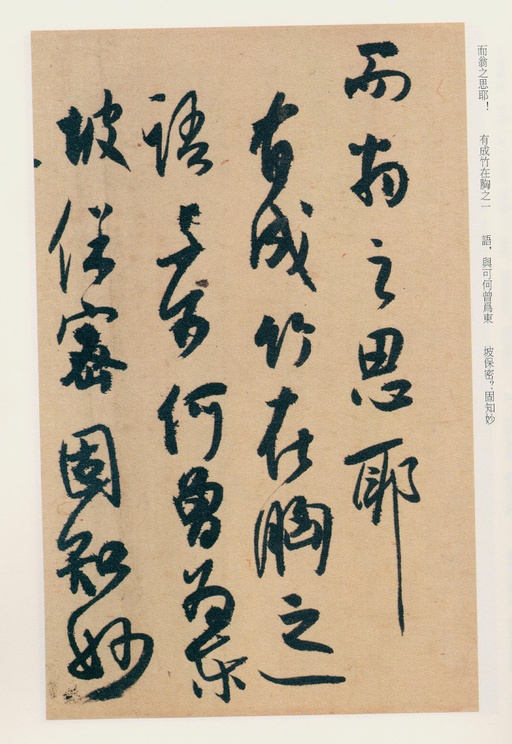 而翁之思耶
有成竹在胸之一
語與可何曾為東
坡保密固知妙
而翁之思耶！
有成竹在胸之一
語，與可何曾爲東
坡保密？固知妙